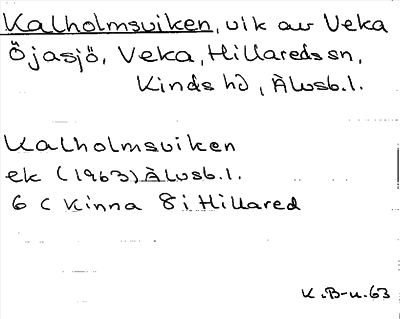 Kalholmsviken, vik av Veka
Öjasjö, Veka, Hillareds sn,
Kinds hd, Älvsb. l.
Kalholmsviken
ek (1963) Älvsb. l.
6 C Kinna 8 i Hillared
K. B-u. 63